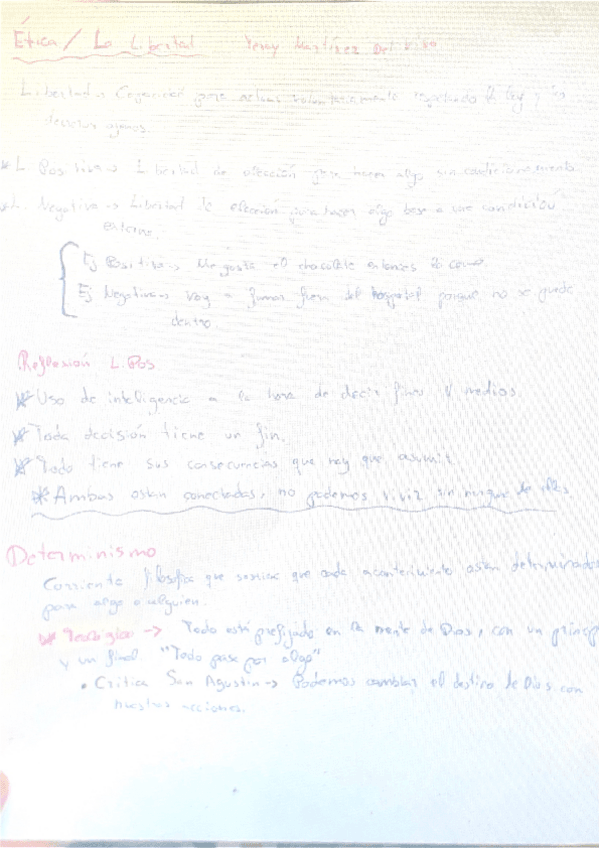 Ética / La Libertad Yeray Martínez Del
Libertad → Capacidad para actuar voluntariamente respetando la ley y los
derechos ajenos.
* L. Positiva → Libertad de elección para hacer algo sin condicionamiento
* L. Negativa → Libertad de elección para hacer algo base a una condición
externa.
Ej Positiva → Me gusta el chocolate entonces lo como.
Ej Negativa → Voy a fumar fuera del hospital porque no se puede
dentro.
Reflexión L. Pos
* Uso de inteligencia a la hora de decir fines y medios.
* Toda decisión tiene un fin.
* Todo tiene sus consecuencias que hay que asumir.
* Ambas están conectadas, no podemos vivir sin ninguna de ellas.
Determinismo
Corriente filosófica que sostiene que cada acontecimiento están determinados
para algo o alguien.
* Teológico → Todo está prefijado en la mente de Dios, con un principio
y un final "Todo pasa por algo"
• Crítica San Agustín → Podemos cambiar el destino de Dios con
nuestras acciones.